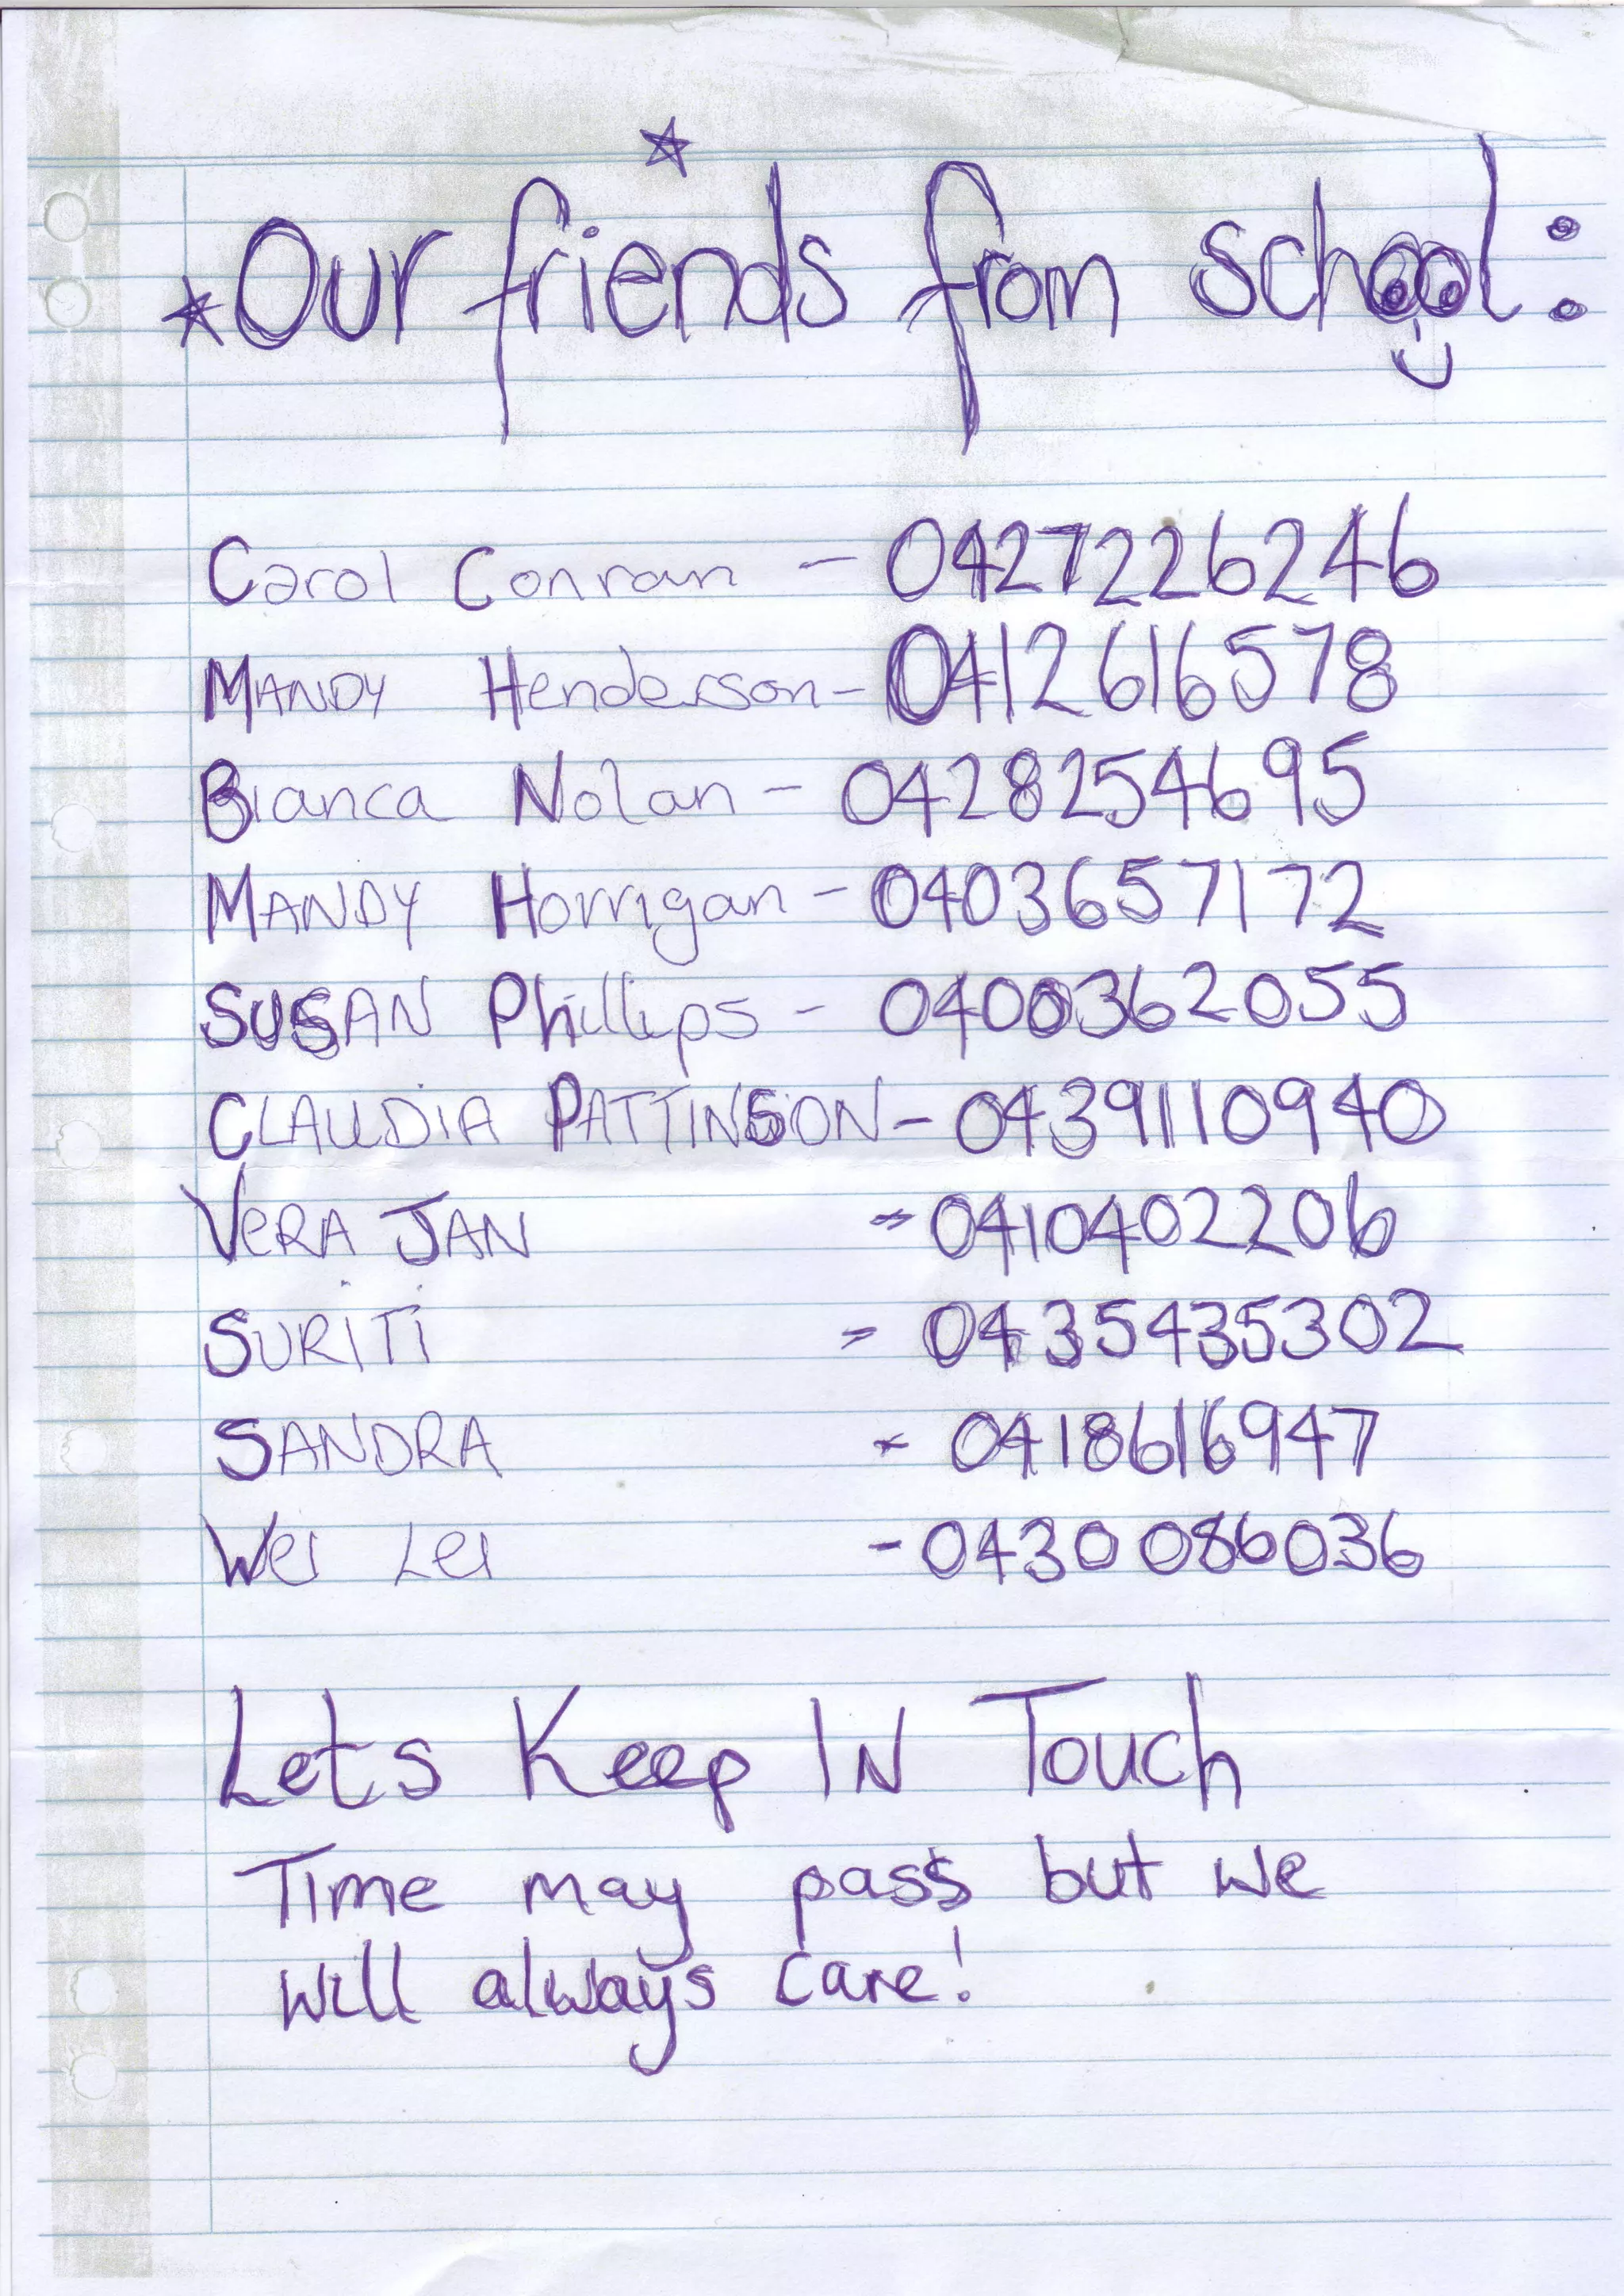 Our friends from school:
Carol Conran - 0427226246
MANDY Henderson - 0412616578
Bianca Nolan - 0428254695
MANDY Horrigan - 0403657172
SUSAN Phillips - 0400362055
CLAUDIA PATTINSON - 0439110940
VERA JAN - 0410402206
SURITI - 0435435302
SANDRA - 0418616947
Wei Lei - 0430086036
Lets Keep IN Touch
Time may pass but we
will always care!